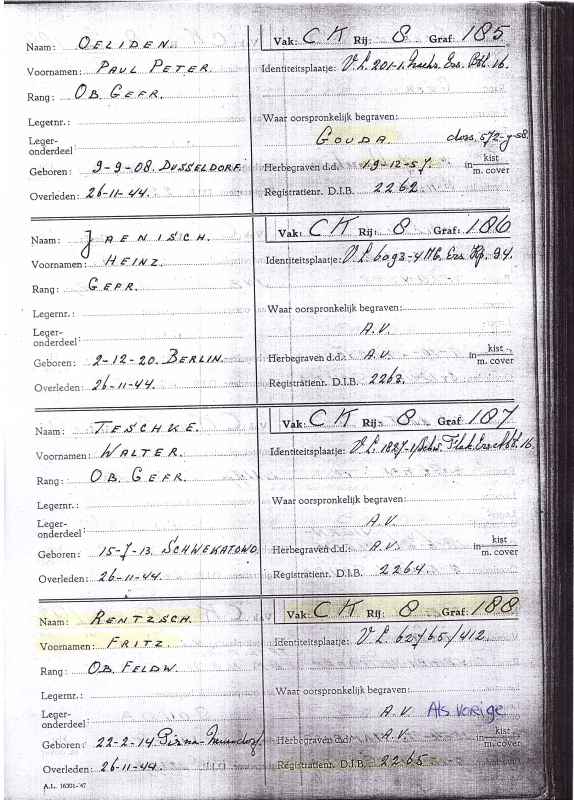 Naam: OELIDEN. Vak: CK Rij: 8 Graf: 185
Voornamen: PAUL PETER. Identiteitsplaatje: V.L. 201-1. Ers. Btl. 16.
Rang: OB. GEFR.
Legernr.: Waar oorspronkelijk begraven:
Leger-onderdeel GOUDA. doss. 572-g-58.
Geboren: 9-9-08. DUSSELDORF. Herbegraven d.d. 19-12-57. in kist / m. cover
Overleden: 26-11-44. Registratienr. D.I.B. 2262
Naam: JAENISCH. Vak: CK Rij: 8 Graf: 186
Voornamen: HEINZ. Identiteitsplaatje: V.L. 6093-4 MG. Ers. Kp. 94.
Rang: GEFR.
Legernr.: Waar oorspronkelijk begraven:
Leger-onderdeel: A.V.
Geboren: 2-12-20. BERLIN. Herbegraven d.d.: A.V. in kist / m. cover
Overleden: 26-11-44. Registratienr. D.I.B. 2263.
Naam: TESCHKE. Vak: CK Rij: 8 Graf: 187
Voornamen: WALTER. Identiteitsplaatje: V.L. 1827-1/Schw. Flak. Ers. Abt. 16.
Rang: OB. GEFR.
Legernr.: Waar oorspronkelijk begraven:
Leger-onderdeel: A.V.
Geboren: 15-7-13. SCHWEKATOWO Herbegraven d.d.: A.V. in kist / m. cover
Overleden: 26-11-44. Registratienr. D.I.B. 2264.
Naam: RENTZSCH. Vak: CK Rij: 8 Graf: 188
Voornamen: FRITZ. Identiteitsplaatje: V.L. 62765/412
Rang: OB. FELDW.
Legernr.: Waar oorspronkelijk begraven:
Leger-onderdeel: A.V. Als vorige
Geboren: 22-2-14. Pirna- Herbegraven d.d. A.V. in kist / m. cover
Overleden: 26-11-44. Registratienr. D.I.B. 2265
A.L. 16301-'47